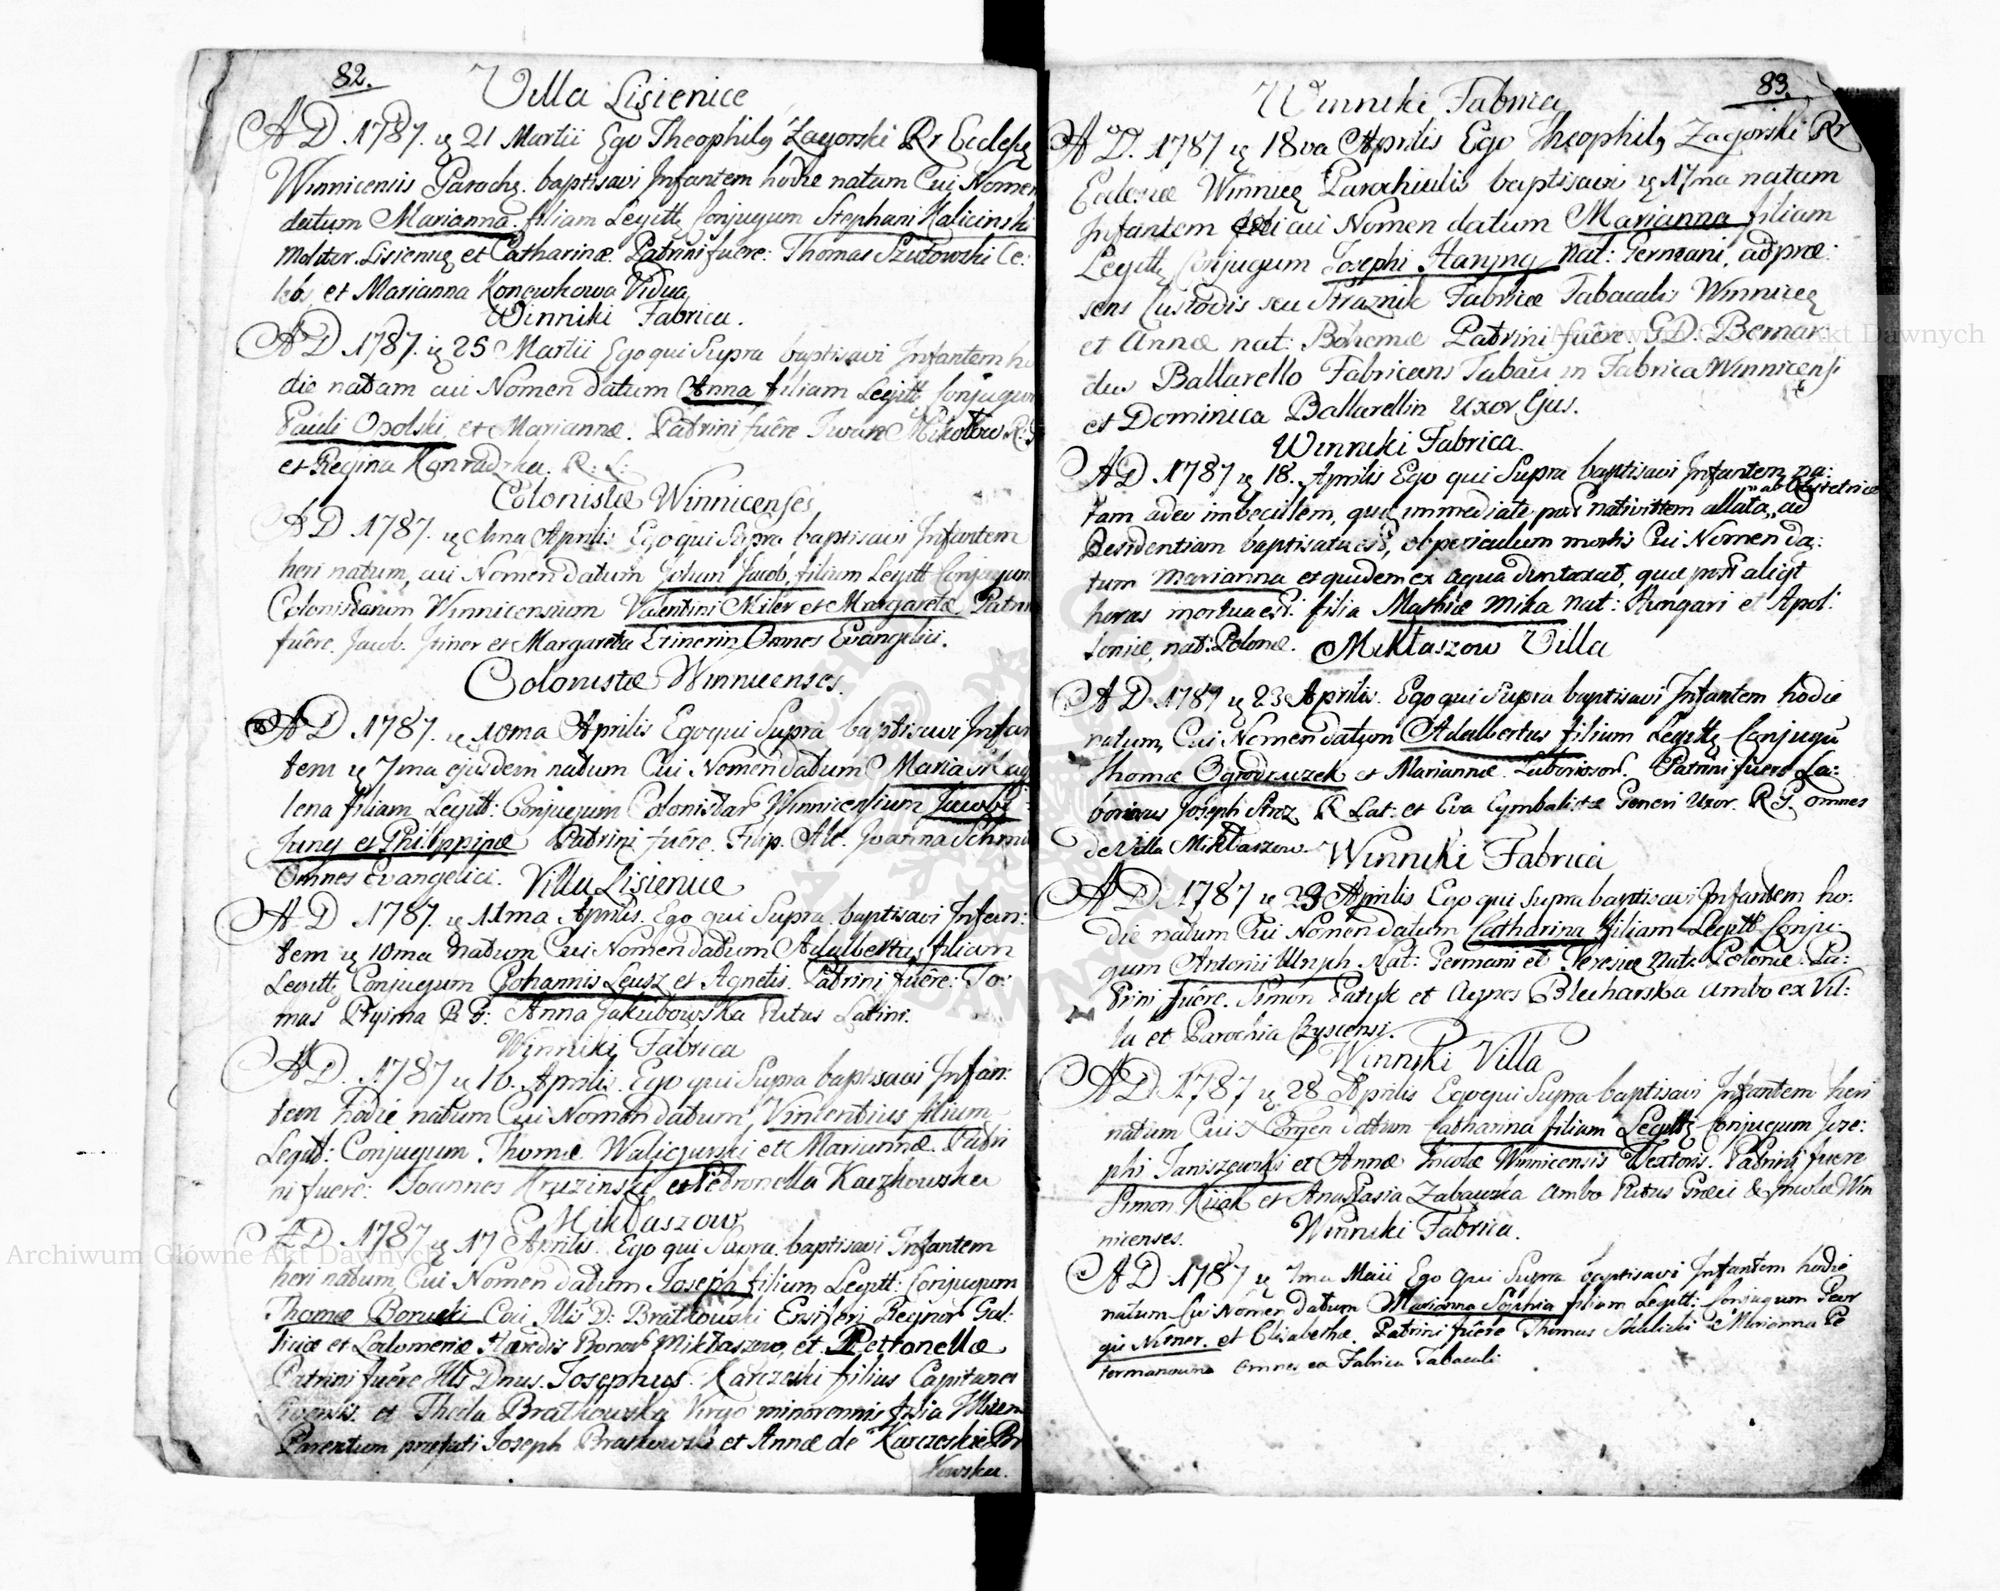 82.
Villa Lisienice
A D. 1787. 21 Martii Ego Theophilg Zagorski Rr Ecclesię
Winnicensis Parochg. baptisavi Infantem hodie natam Cui Nomen
datum Marianna filiam Legitt Conjugum Stephani Halicinski
molitor. Lisienicę et Catharinæ. Patrini fuêre: Thomas Szutowski Cæ:
lebs, et Marianna Konewkowa Vidua
Winniki Fabrica.
A D. 1787. 25 Martii Ego qui Supra baptisavi Infantem ho
die natam cui Nomen datum Anna filiam Legitt Conjugum
Pauli Opolski et Mariannæ. Patrini fuêre Iwan Mikołow R: G
et Regina Konradzka. R: L:
Colonistæ Winnicenses
A D. 1787. 1ma Aprilis Ego qui Supra baptisavi Infantem
heri natum, cui Nomen datum Johan Jacob, filium Legitt Conjugum
Colonistarum Winnicensium Valentini Miler et Margaretæ Patrini
fuêre. Jacob. et Margareta Omnes Evangelici.
Colonistæ Winnicenses.
A D. 1787. 10ma Aprilis Ego qui Supra baptisavi Infan
tem 7ma ejusdem natum Cui Nomen datum Maria Mag
lena filiam Legitt: Conjugum Colonistar Winnicensium Jacobi
Jung et Philippinæ Patrini fuêre. Filip. Alt. Joanna Schmi
Omnes Evangelici. Villa Lisienice
A D. 1787. 11ma Aprilis. Ego qui Supra baptisavi Infan:
tem 10ma natum Cui Nomen datum Adalbertus filium
Legitt Conjugum Johannis Leusz et Agnetis. Patrini fuêre: To:
mas R G: Anna Jakubowska Ritus Latini.
Winniki Fabrica
A D. 1787 16. Aprilis. Ego qui Supra baptisavi Infan:
tem hodie natum Cui Nomen datum Vincentius filium
Legitt: Conjugum Thomæ Waliczurski et Mariannæ. Patri
ni fuêre: Joannes Kruzinski et Petronella Kaczkowska
Mikłaszow
A D. 1787 17 Aprilis. Ego qui Supra baptisavi Infantem
heri natum, Cui Nomen datum Joseph filium Legitt: Conjugum
Thomæ Borucki Coci Illis D: Bratkowski Ensiferi Regnor Gal:
liciæ et Lodomeriæ Hæredis Bonor Mikłaszow, et Pettonellæ
Patrini fuêre Illis Dnus. Josephus Karczeski filius Capitanei
et Thecla Bratkowska Virgo minorennis filia
Parentum præfati Joseph Bratkowski et Annæ de Karczeskie Br
kowska.
83.
Winniki Fabrica
A D. 1787 18va Aprilis Ego Theophilg Zagorski Rr
Eclesiæ Winnicę Parochialis baptisavi 17ma natam
Infantem cui Nomen datum Marianna filiam
Legitt Conjugum Josephi Haning Nat: Germani, ad præ:
sens Custodis seu Straznik Fabricæ Tabacalis Winnicę
et Annæ nat: Bohemæ Patrini fuêre, G. D. Bernar
dus Ballarello Fabricans Tabaci in Fabrica Winnicensi
et Dominica Ballarellin Uxor Ejus.
Winniki Fabrica.
A D. 1787 18. Aprilis Ego qui Supra baptisavi Infantem na:
tam adeo imbecillem, quę immediate post nativittem allata, ab Obstetrice ad
Residentiam baptisata est, ob periculum mortis Cui Nomen da:
tum Marianna et quidem ex aqua duntaxat, quæ post aliqt
horas mortua est. filia Mathiæ Mika Nat: Hungari et Apol:
loniæ, nat: Polonæ. Mikłaszow Villa
A D. 1787 23 Aprilis. Ego qui Supra baptisavi Infantem hodie
natum, Cui Nomen datum Adalbertus filium Legitt Conjugū
Thomæ Ogrodniczek et Mariannæ Laborioso. Patrini fuêre La:
boriosus Joseph R Lat: et Eva Cymbalistæ Generi Uxor. R G. omnes
de Villa Mikłaszow. Winniki Fabrica
A D. 1787 23 Aprilis Ego qui Supra baptisavi Infantem ho:
die natam Cui Nomen datum Catharina filiam Legitt Conju:
gum Antonii Nat: Germani et Teresiæ nat: Polonæ. Pa:
trini fuêre. Simon Patyk et Agnes Blecharska ambo ex Vil:
la et Parochia
Winniki Villa
A D. 1787 28 Aprilis Ego qui Supra baptisavi Infantem heri
natam Cui Nomen datum Catharina filiam Legitt Conjugum Joze:
phi Janiszewski et Annæ Incolæ Winnicensis Textoris. Patrini fuere
Simon Kiiak et Anastasia Zabawska ambo Ritus Græci & Incolæ Win
nicenses. Winniki Fabrica.
A D. 1787 7ma Maii Ego Qui Supra baptisavi Infantem hodie
natam Cui Nomen datum Marianna Sophia filiam Legitt: Conjugum Geor
gii et Elisabethæ. Patrini fuêre Thomas Skalicki et Marianna Pe
termanowna omnes ex Fabrica Tabacali
Archiwum Główne Akt Dawnych
Archiwum Główne Akt Dawnych